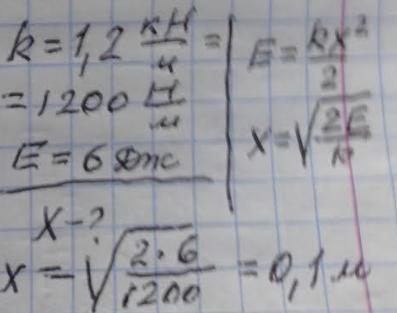 k = 1,2 кН/м =
= 1200 Н/м
E = 6 Дж
x - ?
E = kx²/2
x = √(2E/k)
x = √(2·6/1200) = 0,1 м